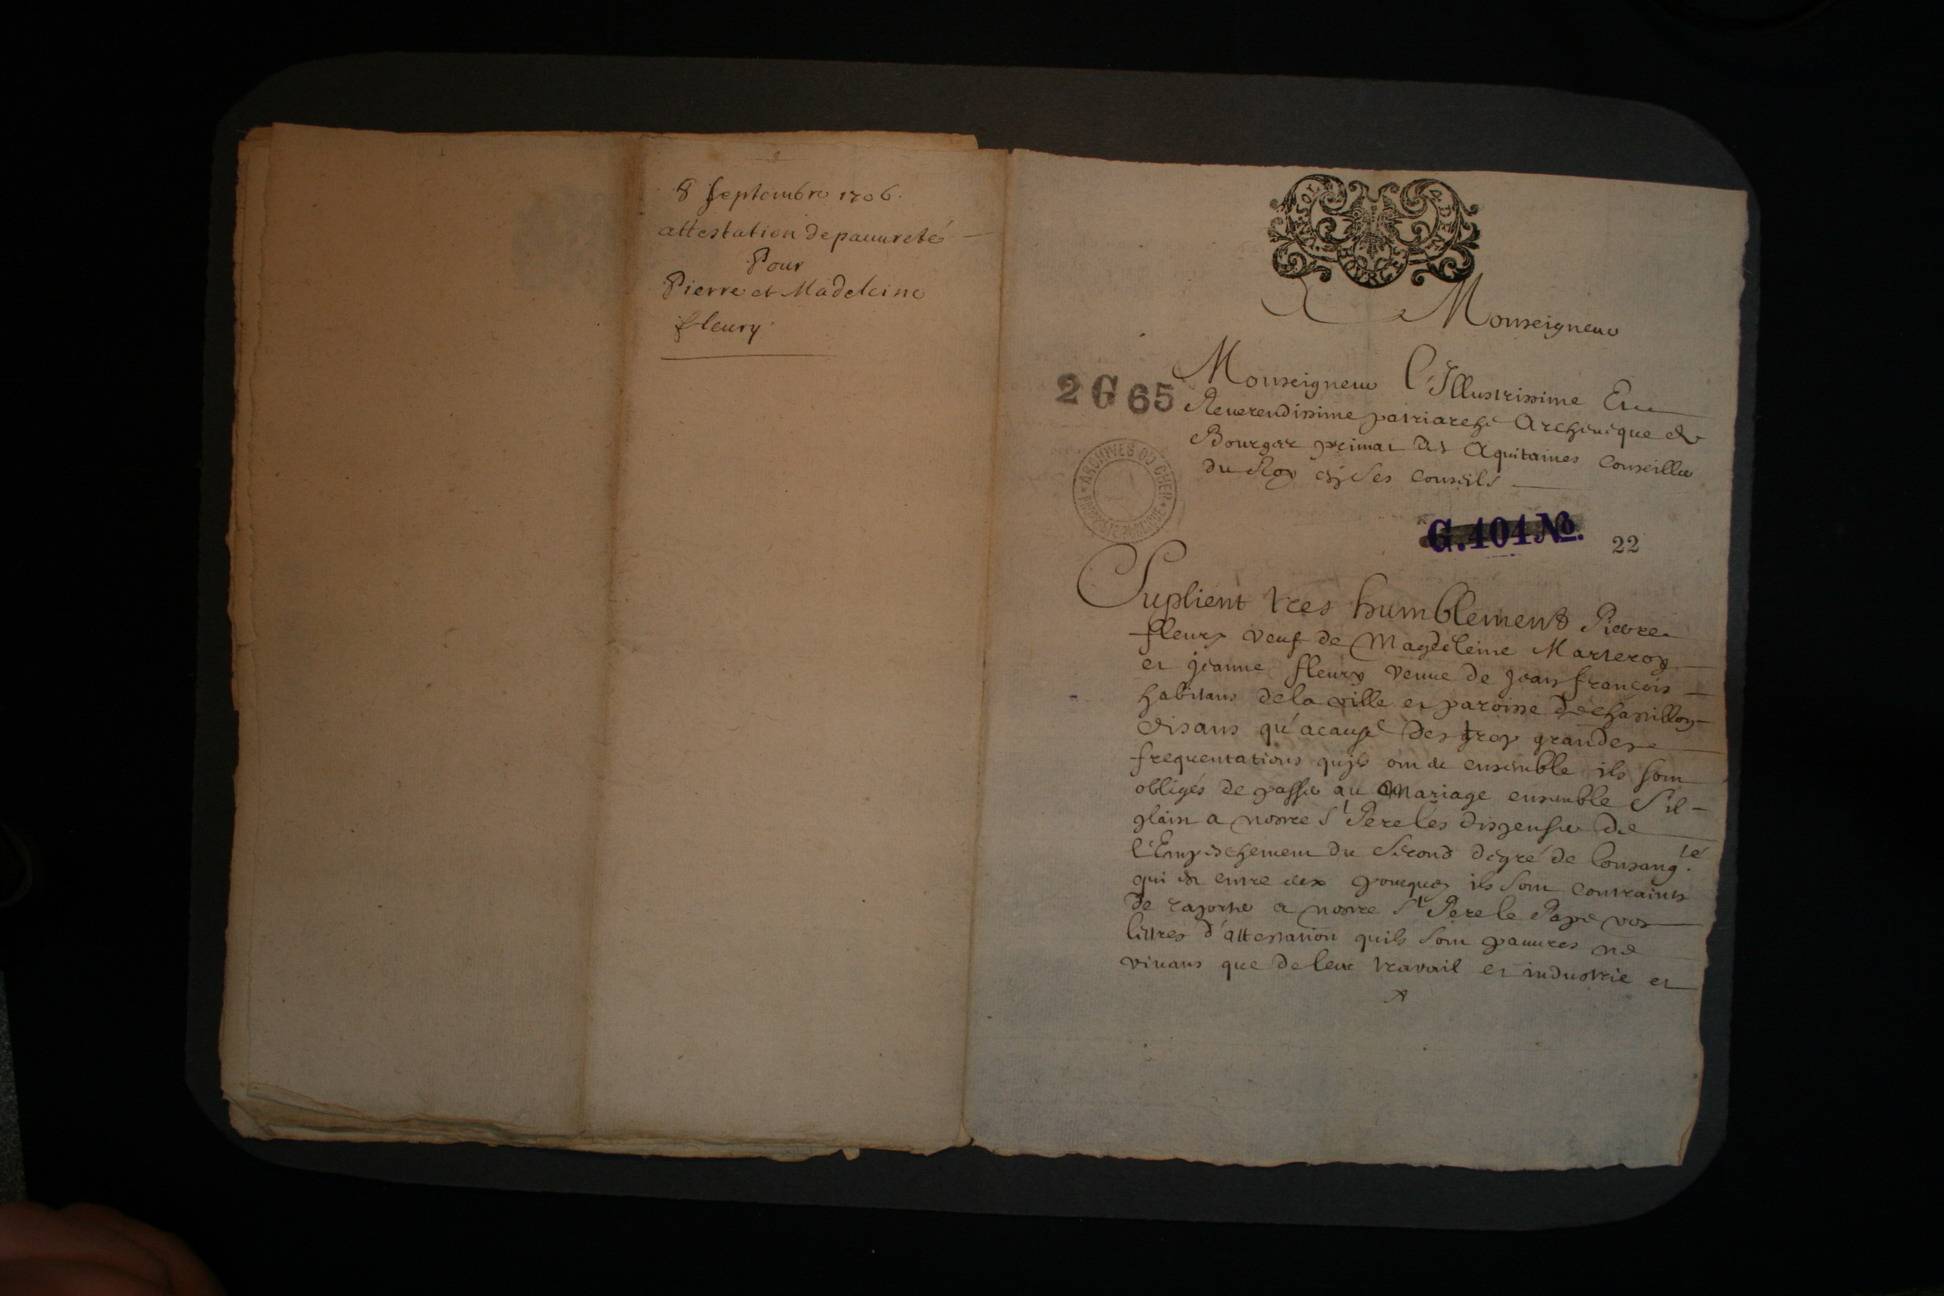 8 septembre 1706.
attestation de pauureté
Pour
Pierre et Madeleine
fleury
A Monseigneur
Monseigneur l'Illustrissime Et
Reuerendissime patriarche Archeuêque de
Bourges primat des Aquitaines Conseiller
du Roy en ses conseils
2 G 65
ARCHIVES DU CHER
G.101 No.
22
Suplient tres humblement Pierre
fleury veuf de Magdeleine Marteroy
et jeanne fleury veuue de jean françois
habitans de la ville et paroisse de chastillon
disans qu'a cause des trop grandes
frequentations qu'ils ont ensemble ils sont
obligés de passer au Mariage ensemble s'il
plain a nostre St Pere les dispenser de
l'Empeschement du second degré de Consang.té
qui est entre eux pourquoy ils sont contraints
de raporter a nostre St Pere le Pape vos
lettres d'attestation quils sont pauures ne
viuans que de leur travail et industrie et